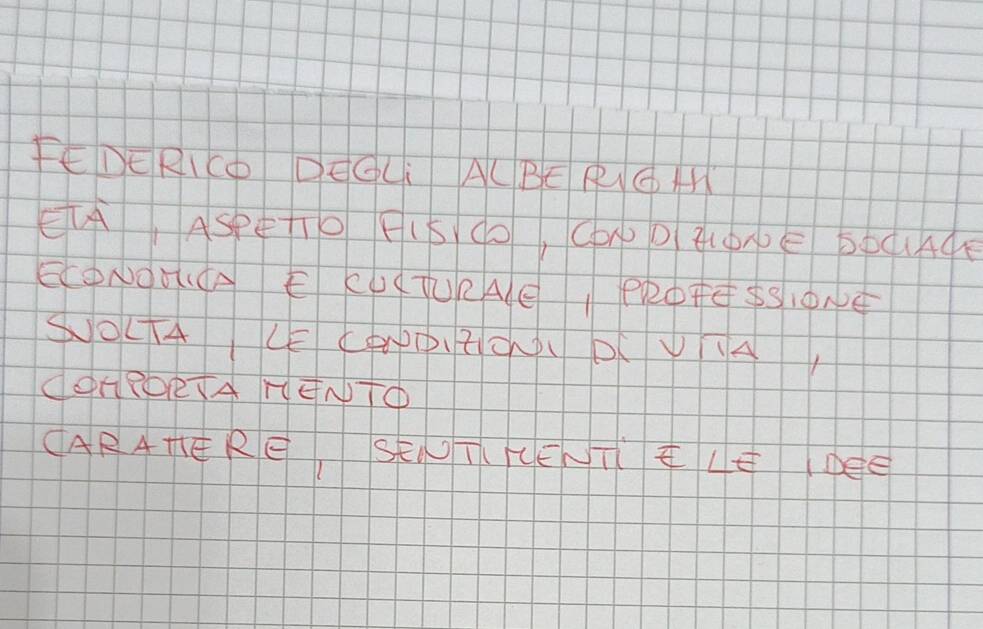 FEDERICO DEGLI ALBERIGHI
ETÀ, ASPETTO FISICO, CONDIZIONE SOCIALE
ECONOMICA E CULTURALE, PROFESSIONE
SVOLTA, LE CONDIZIONI DI VITA,
COMPORTAMENTO
CARATTERE, SENTIMENTI E LE IDEE